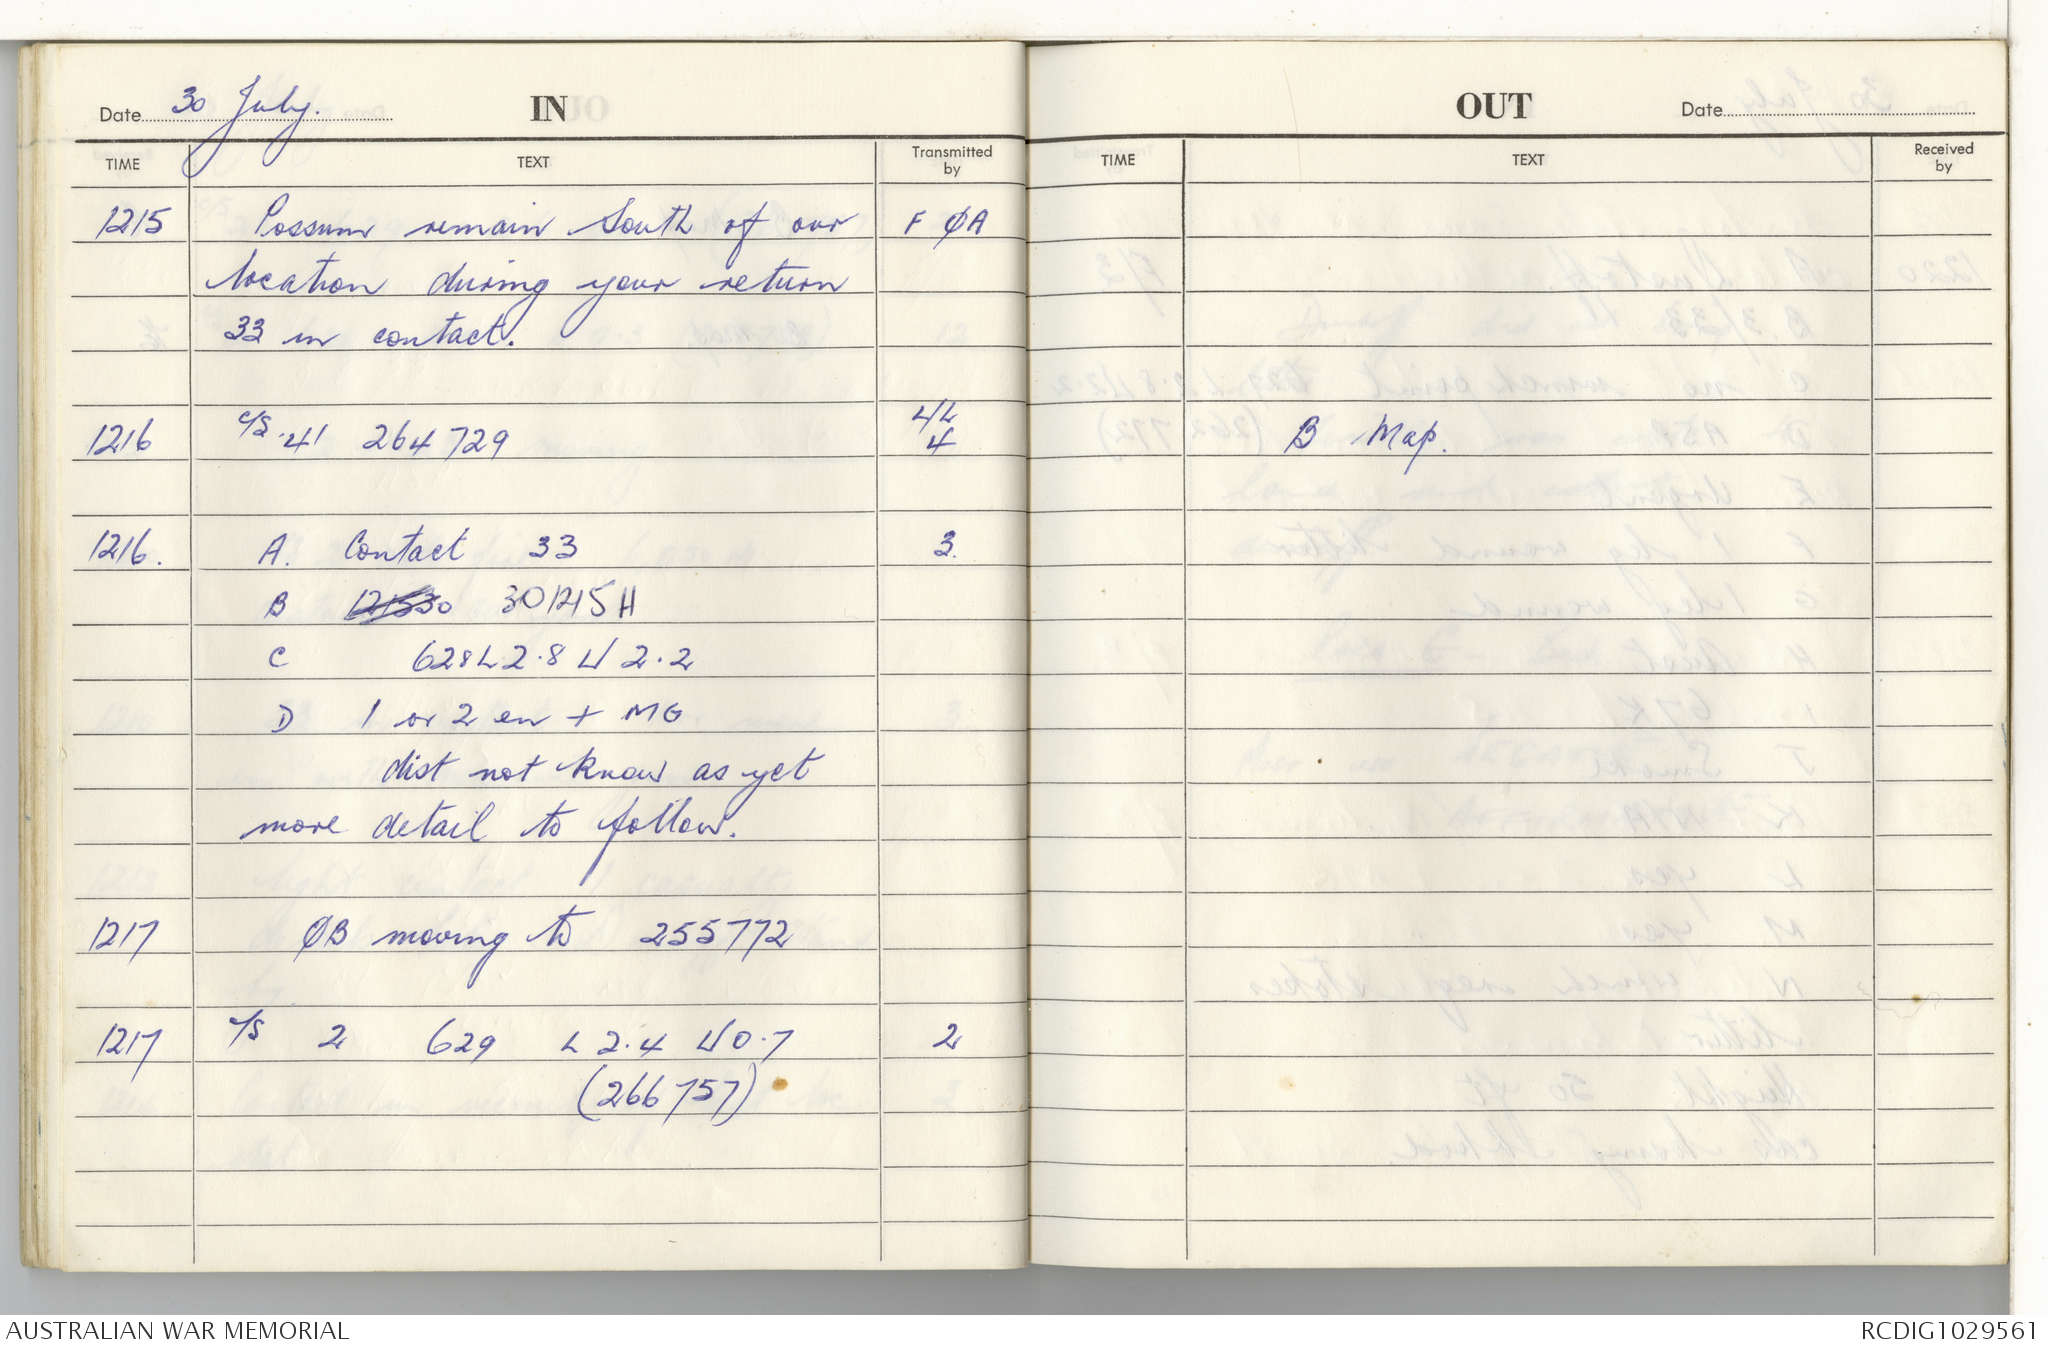 Date 30 July. IN
TIME TEXT Transmitted by
1215 Possum remain South of our F ØA
location during your return
33 in contact.
1216 c/s 41 264729 4/4
1216. A. Contact 33 3.
B 121530 301215H
C 628 L 2.8 U 2.2
D 1 or 2 en + MG
dist not know as yet
more detail to follow.
1217 ØB moving to 255772
1217 c/s 2 629 L 2.4 U 0.7 2
(266757)
OUT Date
TIME TEXT Received by
B Map.
AUSTRALIAN WAR MEMORIAL
RCDIG1029561